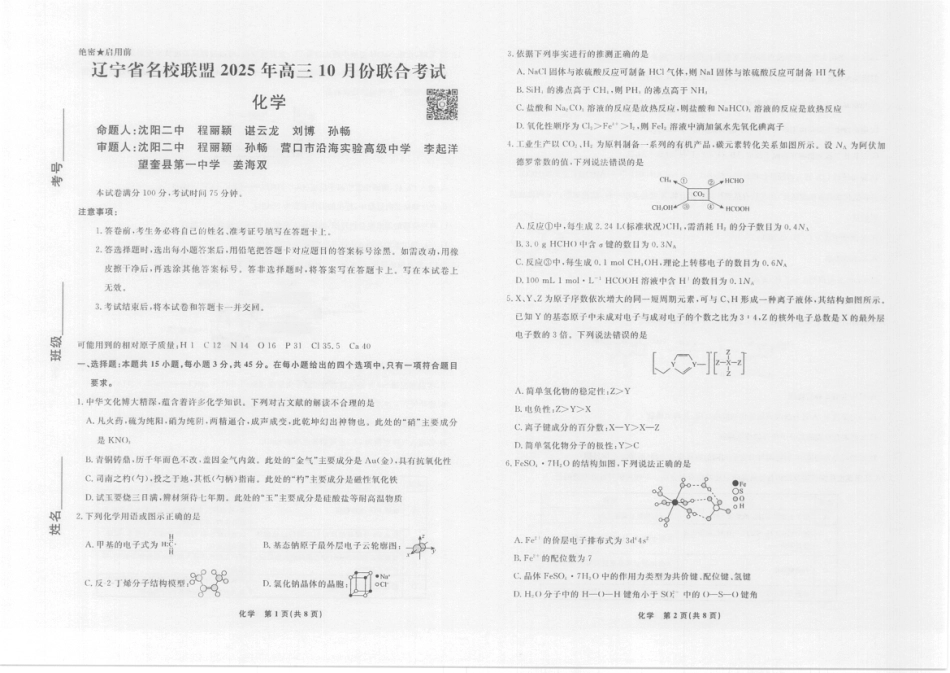 绝密★启用前
辽宁省名校联盟 2025 年高三 10 月份联合考试
化学
命题人:沈阳二中 程丽颖 谌云龙 刘博 孙畅
审题人:沈阳二中 程丽颖 孙畅 营口市沿海实验高级中学 李起洋
望奎县第一中学 姜海双
考号
班级
姓名
本试卷满分 100 分,考试时间 75 分钟。
注意事项:
1.答卷前,考生务必将自己的姓名、准考证号填写在答题卡上。
2.答选择题时,选出每小题答案后,用铅笔把答题卡对应题目的答案标号涂黑。如需改动,用橡
皮擦干净后,再选涂其他答案标号。答非选择题时,将答案写在答题卡上。写在本试卷上
无效。
3.考试结束后,将本试卷和答题卡一并交回。
可能用到的相对原子质量:H 1 C 12 N 14 O 16 P 31 Cl 35.5 Ca 40
一、选择题:本题共 15 小题,每小题 3 分,共 45 分。在每小题给出的四个选项中,只有一项符合题目
要求。
1.中华文化博大精深,蕴含着许多化学知识。下列对古文献的解读不合理的是
A.凡火药,硫为纯阳,硝为纯阴,两精逼合,成声成变,此乾坤幻出神物也。此处的“硝”主要成分
是 KNO₃
B.青铜铸鼎,历千年而色不改,盖因金气内敛。此处的“金气”主要成分是 Au(金),具有抗氧化性
C.司南之杓(勺),投之于地,其柢(勺柄)指南。此处的“杓”主要成分是磁性氧化铁
D.试玉要烧三日满,辨材须待七年期。此处的“玉”主要成分是硅酸盐等耐高温物质
2.下列化学用语或图示正确的是
A.甲基的电子式为
B.基态钠原子最外层电子云轮廓图:
C.反-2-丁烯分子结构模型:
D.氯化钠晶体的晶胞:
Na⁺
Cl⁻
化学 第 1 页(共 8 页)
3.依据下列事实进行的推测正确的是
A.NaCl 固体与浓硫酸反应可制备 HCl 气体,则 NaI 固体与浓硫酸反应可制备 HI 气体
B.SiH₄ 的沸点高于 CH₄,则 PH₃ 的沸点高于 NH₃
C.盐酸和 Na₂CO₃ 溶液的反应是放热反应,则盐酸和 NaHCO₃ 溶液的反应是放热反应
D.氧化性顺序为 Cl₂>Fe³⁺>I₂,则 FeI₂ 溶液中滴加氯水先氧化碘离子
4.工业生产以 CO₂、H₂ 为原料制备一系列的有机产品,碳元素转化关系如图所示。设 Nₐ 为阿伏加
德罗常数的值,下列说法错误的是
CH₄ ① ② HCHO
CO₂
CH₃OH ③ ④ HCOOH
A.反应①中,每生成 2.24 L(标准状况)CH₄,需消耗 H₂ 的分子数目为 0.4Nₐ
B.3.0 g HCHO 中含 σ 键的数目为 0.3Nₐ
C.反应③中,每生成 0.1 mol CH₃OH,理论上转移电子的数目为 0.6Nₐ
D.100 mL 1 mol·L⁻¹ HCOOH 溶液中含 H⁺ 的数目为 0.1Nₐ
5.X、Y、Z 为原子序数依次增大的同一短周期元素,可与 C、H 形成一种离子液体,其结构如图所示。
已知 Y 的基态原子中未成对电子与成对电子的个数之比为 3∶4,Z 的核外电子总数是 X 的最外层
电子数的 3 倍。下列说法错误的是
A.简单氢化物的稳定性:Z>Y
B.电负性:Z>Y>X
C.离子键成分的百分数:X—Y>X—Z
D.简单氢化物分子的极性:Y>C
6.FeSO₄·7H₂O 的结构如图,下列说法正确的是
Fe
S
O
H
A.Fe²⁺ 的价层电子排布式为 3d⁴4s²
B.Fe²⁺ 的配位数为 7
C.晶体 FeSO₄·7H₂O 中的作用力类型为共价键、配位键、氢键
D.H₂O 分子中的 H—O—H 键角小于 SO₄²⁻ 中的 O—S—O 键角
化学 第 2 页(共 8 页)